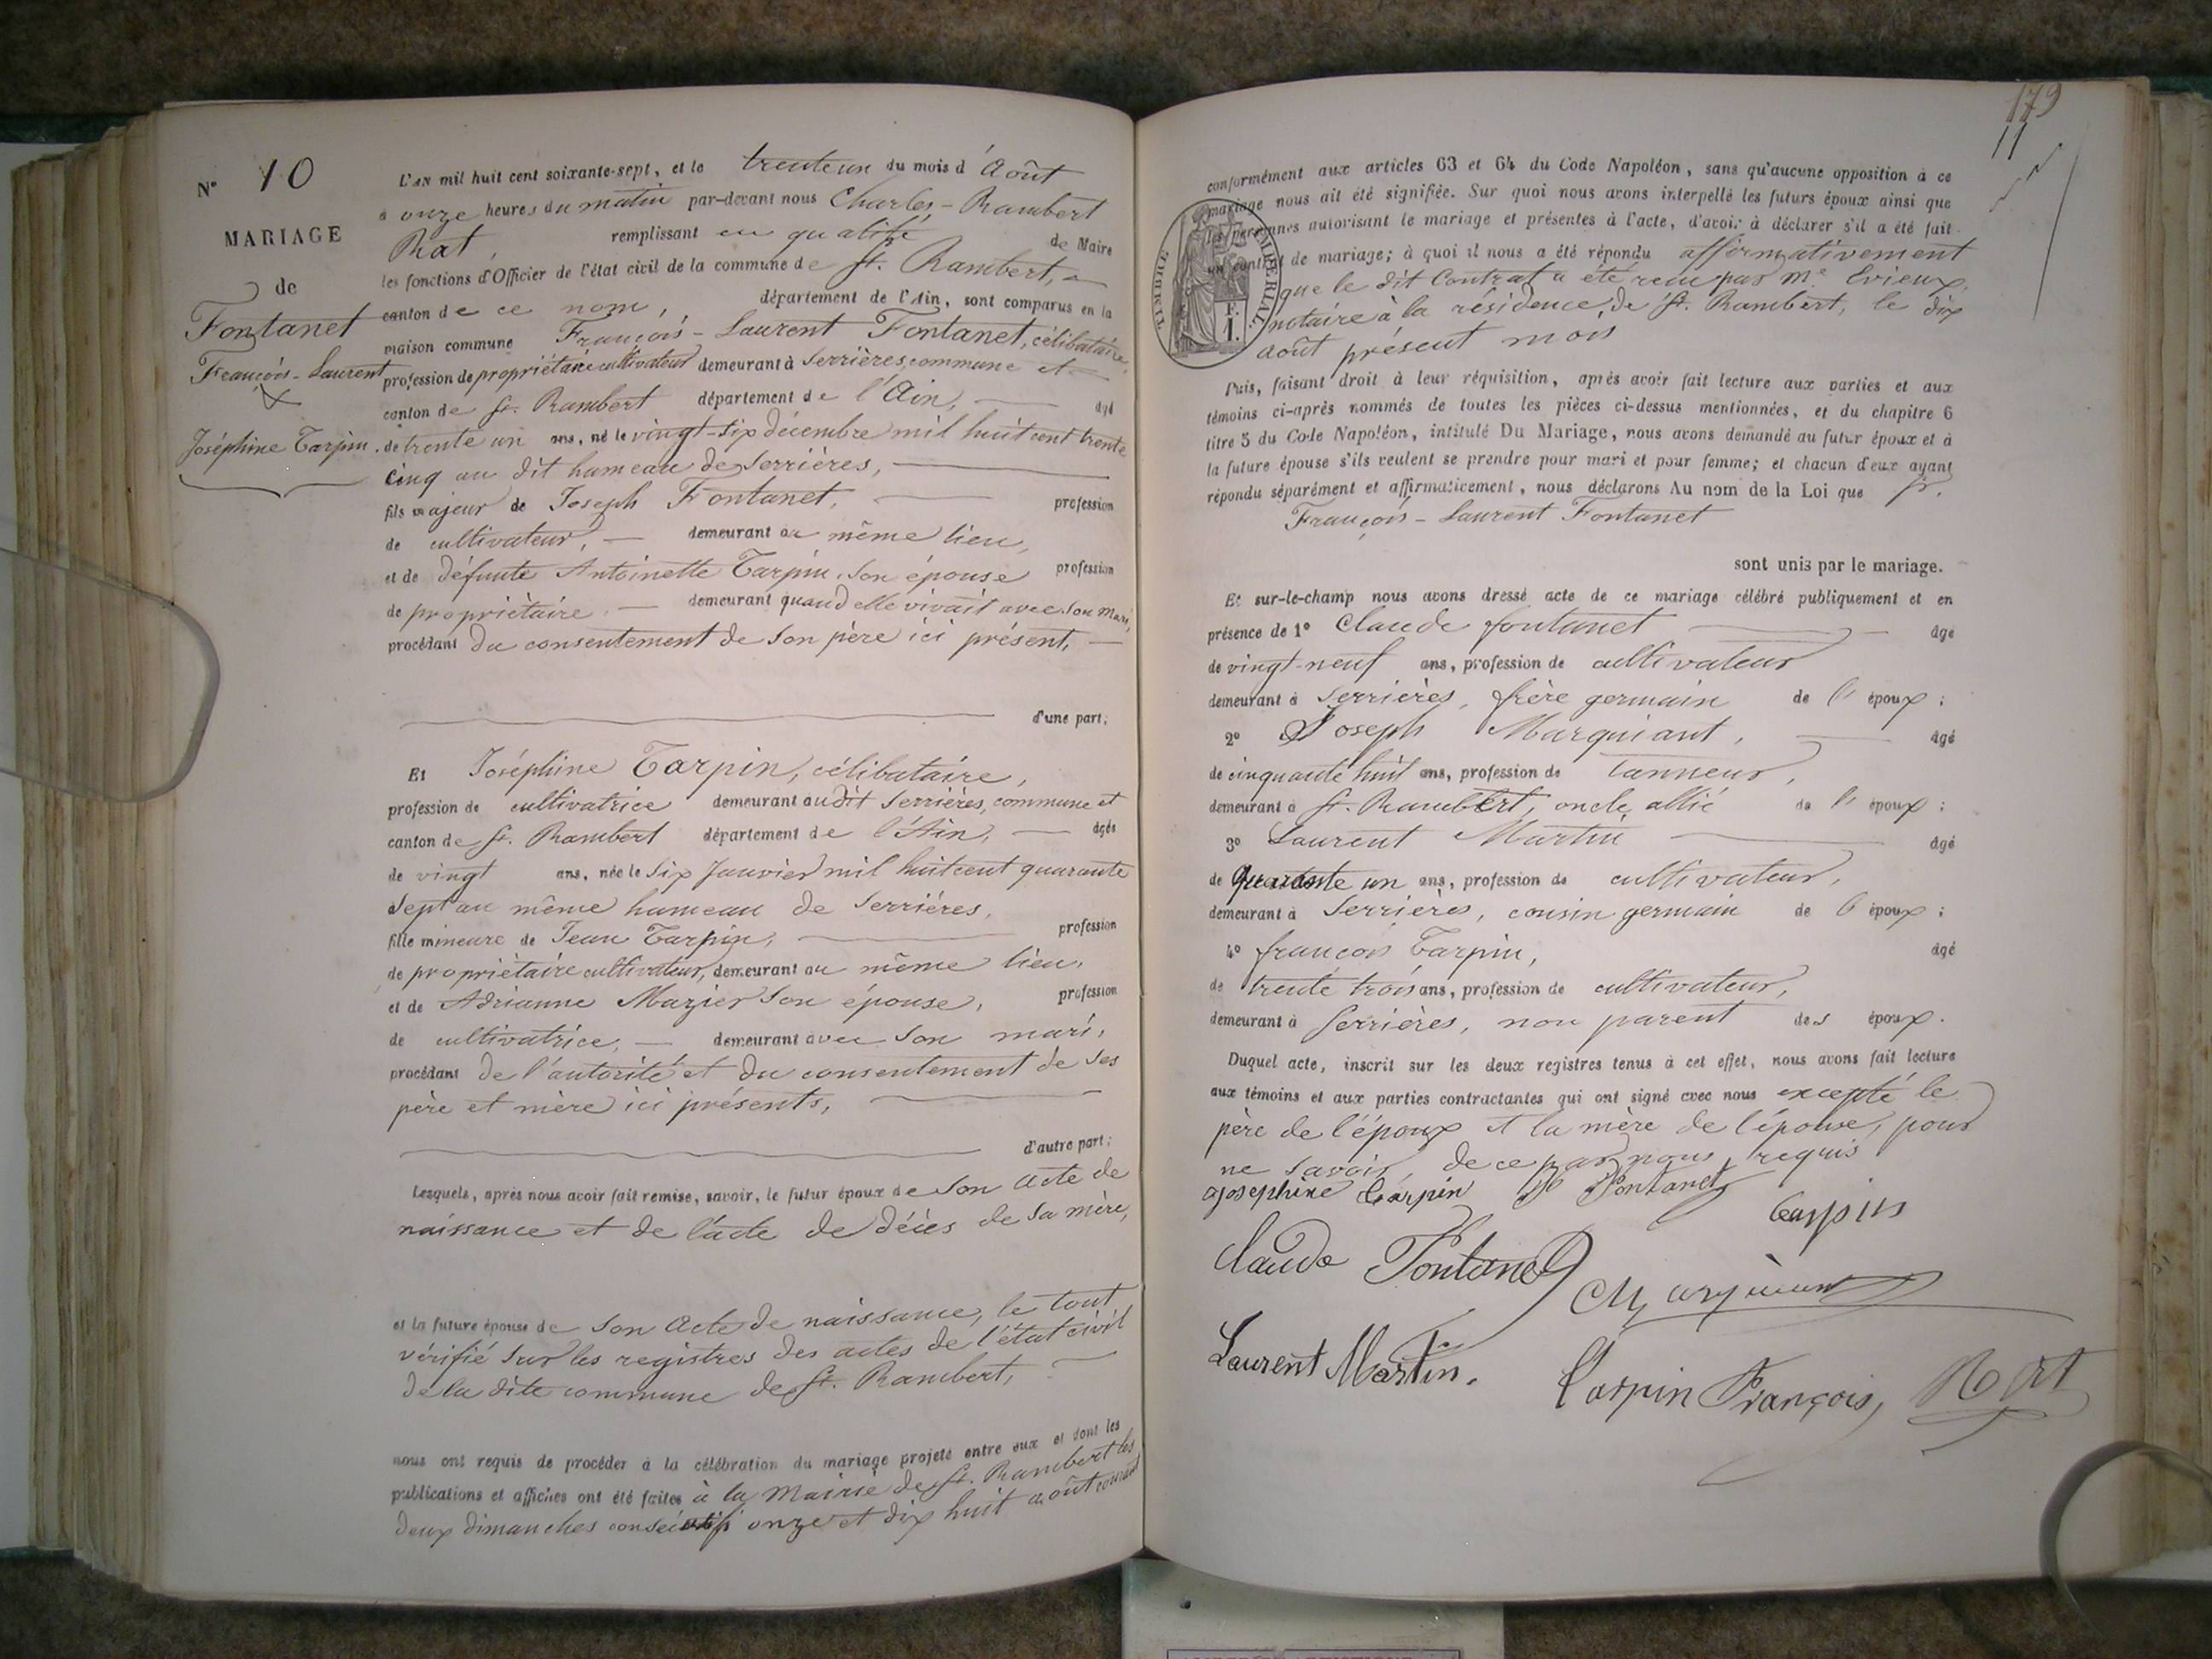 N° 10
MARIAGE
de
Fontanet
François-Laurent
&
Joséphine Tarpin.
L'AN mil huit cent soixante-sept, et le trente un du mois d'Août
à onze heures du matin par-devant nous Charles-Rambert
Rat, remplissant en qualité de Maire
les fonctions d'Officier de l'état civil de la commune de St. Rambert,
canton de ce nom, département de l'Ain, sont comparus en la
maison commune François-Laurent Fontanet, célibataire,
profession de propriétaire cultivateur demeurant à Serrières, commune et
canton de St. Rambert département de l'Ain, âgé
de trente un ans, né le vingt-six décembre mil huit cent trente
cinq au dit hameau de Serrières,
fils majeur de Joseph Fontanet, profession
de cultivateur, demeurant au même lieu,
et de défunte Antoinette Tarpin, son épouse profession
de propriétaire demeurant quand elle vivait avec son mari,
procédant du consentement de son père ici présent,
d'une part;
Et Joséphine Tarpin, célibataire,
profession de cultivatrice demeurant au dit Serrières, commune et
canton de St. Rambert département de l'Ain, âgée
de vingt ans, née le six Janvier mil huit cent quarante
sept au même hameau de Serrières,
fille mineure de Jean Tarpin, profession
de propriétaire cultivateur, demeurant au même lieu,
et de Adrianne Mazier son épouse, profession
de cultivatrice, demeurant avec son mari,
procédant de l'autorité et du consentement de ses
père et mère ici présents,
d'autre part;
Lesquels, après nous avoir fait remise, savoir, le futur époux de son acte de
naissance et de l'acte de décès de sa mère,
et la future épouse de son acte de naissance, le tout
vérifié sur les registres des actes de l'état civil
de la dite commune de St. Rambert,
nous ont requis de procéder à la célébration du mariage projeté entre eux et dont les
publications et affiches ont été faites à la Mairie de St. Rambert les
deux dimanches consécutifs onze et dix huit août courant
179
11
conformément aux articles 63 et 64 du Code Napoléon, sans qu'aucune opposition à ce
mariage nous ait été signifiée. Sur quoi nous avons interpellé les futurs époux ainsi que
les personnes autorisant le mariage et présentes à l'acte, d'avoir à déclarer s'il a été fait
un contrat de mariage; à quoi il nous a été répondu affirmativement
que le dit Contrat a été reçu par Me Evieux,
notaire à la résidence de St. Rambert, le dix
août présent mois
TIMBRE IMPERIAL
F.
1.
Puis, faisant droit à leur réquisition, après avoir fait lecture aux parties et aux
témoins ci-après nommés de toutes les pièces ci-dessus mentionnées, et du chapitre 6
titre 5 du Code Napoléon, intitulé Du Mariage, nous avons demandé au futur époux et à
la future épouse s'ils veulent se prendre pour mari et pour femme; et chacun d'eux ayant
répondu séparément et affirmativement, nous déclarons Au nom de la Loi que
François-Laurent Fontanet
sont unis par le mariage.
Et sur-le-champ nous avons dressé acte de ce mariage célébré publiquement et en
présence de 1° Claude fontanet âgé
de vingt-neuf ans, profession de cultivateur
demeurant à Serrières, frère germain de l' époux;
2° Joseph Marquiant, âgé
de cinquante huit ans, profession de tanneur,
demeurant à St. Rambert, oncle, allié de l' époux;
3° Laurent Martin âgé
de quarante un ans, profession de cultivateur,
demeurant à Serrières, cousin germain de l' époux;
4° françois Tarpin, âgé
de trente trois ans, profession de cultivateur,
demeurant à Serrières, non parent des époux.
Duquel acte, inscrit sur les deux registres tenus à cet effet, nous avons fait lecture
aux témoins et aux parties contractantes qui ont signé avec nous excepté le
père de l'époux et la mère de l'épouse, pour
ne savoir, de ce par nous requis
josephine Tarpin Fontanet
Tarpin
Claude Fontanet
Marquiant
Laurent Martin.
Tarpin François, Rat